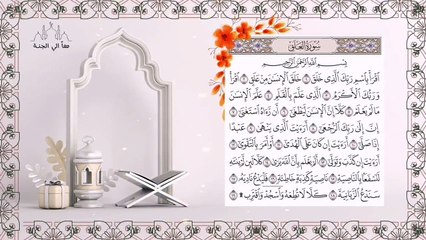 معا إلى الجنة
سُورَةُ العَلَقِ
بِسْمِ اللَّهِ الرَّحْمَٰنِ الرَّحِيمِ
ٱقْرَأْ بِٱسْمِ رَبِّكَ ٱلَّذِى خَلَقَ ١ خَلَقَ ٱلْإِنسَٰنَ مِنْ عَلَقٍ ٢ ٱقْرَأْ
وَرَبُّكَ ٱلْأَكْرَمُ ٣ ٱلَّذِى عَلَّمَ بِٱلْقَلَمِ ٤ عَلَّمَ ٱلْإِنسَٰنَ
مَا لَمْ يَعْلَمْ ٥ كَلَّآ إِنَّ ٱلْإِنسَٰنَ لَيَطْغَىٰٓ ٦ أَن رَّءَاهُ ٱسْتَغْنَىٰٓ ٧
إِنَّ إِلَىٰ رَبِّكَ ٱلرُّجْعَىٰٓ ٨ أَرَءَيْتَ ٱلَّذِى يَنْهَىٰ ٩ عَبْدًا
إِذَا صَلَّىٰٓ ١٠ أَرَءَيْتَ إِن كَانَ عَلَى ٱلْهُدَىٰٓ ١١ أَوْ أَمَرَ بِٱلتَّقْوَىٰٓ ١٢
أَرَءَيْتَ إِن كَذَّبَ وَتَوَلَّىٰٓ ١٣ أَلَمْ يَعْلَم بِأَنَّ ٱللَّهَ يَرَىٰ ١٤ كَلَّا لَئِن لَّمْ يَنتَهِ
لَنَسْفَعًۢا بِٱلنَّاصِيَةِ ١٥ نَاصِيَةٍ كَٰذِبَةٍ خَاطِئَةٍ ١٦ فَلْيَدْعُ نَادِيَهُۥ ١٧
سَنَدْعُ ٱلزَّبَانِيَةَ ١٨ كَلَّا لَا تُطِعْهُ وَٱسْجُدْ وَٱقْتَرِب ١٩